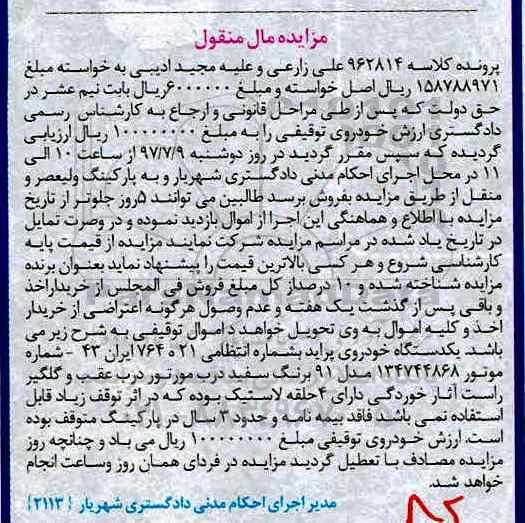 مزایده مال منقول
پرونده کلاسه ۹۶۲۸۱۴ علی زارعی و علیه مجید ادیبی به خواسته مبلغ
۱۵۸۷۸۸۹۷۱ ریال اصل خواسته و مبلغ ۶۰۰۰۰۰۰ ریال بابت نیم عشر در
حق دولت که پس از طی مراحل قانونی و ارجاع به کارشناس رسمی
دادگستری ارزش خودروی توقیفی را به مبلغ ۱۰۰۰۰۰۰۰۰ ریال ارزیابی
گردیده که سپس مقرر گردید در روز دوشنبه ۹۷/۷/۹ از ساعت ۱۰ الی
۱۱ در محل اجرای احکام مدنی دادگستری شهریار و به پارکینگ ولیعصر و
منقل از طریق مزایده بفروش برسد طالبین می توانند ۵روز جلوتر از تاریخ
مزایده با اطلاع و هماهنگی این اجرا از اموال بازدید نموده و در وصرت تمایل
در تاریخ یاد شده در مراسم مزایده شرکت نمایند مزایده از قیمت پایه
کارشناسی شروع و هر کسی بالاترین قیمت را پیشنهاد نماید بعنوان برنده
مزایده شناخته شده و ۱۰ درصداز کل مبلغ فروش فی المجلس از خریداراخذ
و باقی پس از گذشت یک هفته و عدم وصول هرگونه اعتراضی از خریدار
اخذ و کلیه اموال به وی تحویل خواهد د اموال توقیفی به شرح زیر می
باشد. یکدستگاه خودروی پراید بشماره انتظامی ۲۱ ه ۷۶۴ ایران ۴۳ - شماره
موتور ۱۳۴۷۴۴۸۶۸ مدل ۹۱ برنگ سفید درب مورتور درب عقب و گلگیر
راست آثار خوردگی دارای ۴حلقه لاستیک بوده که در اثر توقف زیاد قابل
استفاده نمی باشد فاقد بیمه نامه و حدود ۳ سال در پارکینگ متوقف بوده
است. ارزش خودروی توقیفی مبلغ ۱۰۰۰۰۰۰۰۰ ریال می باد و چنانچه روز
مزایده مصادف با تعطیل گردید مزایده در فردای همان روز وساعت انجام
خواهد شد.
مدیر اجرای احکام مدنی دادگستری شهریار {۲۱۱۳}